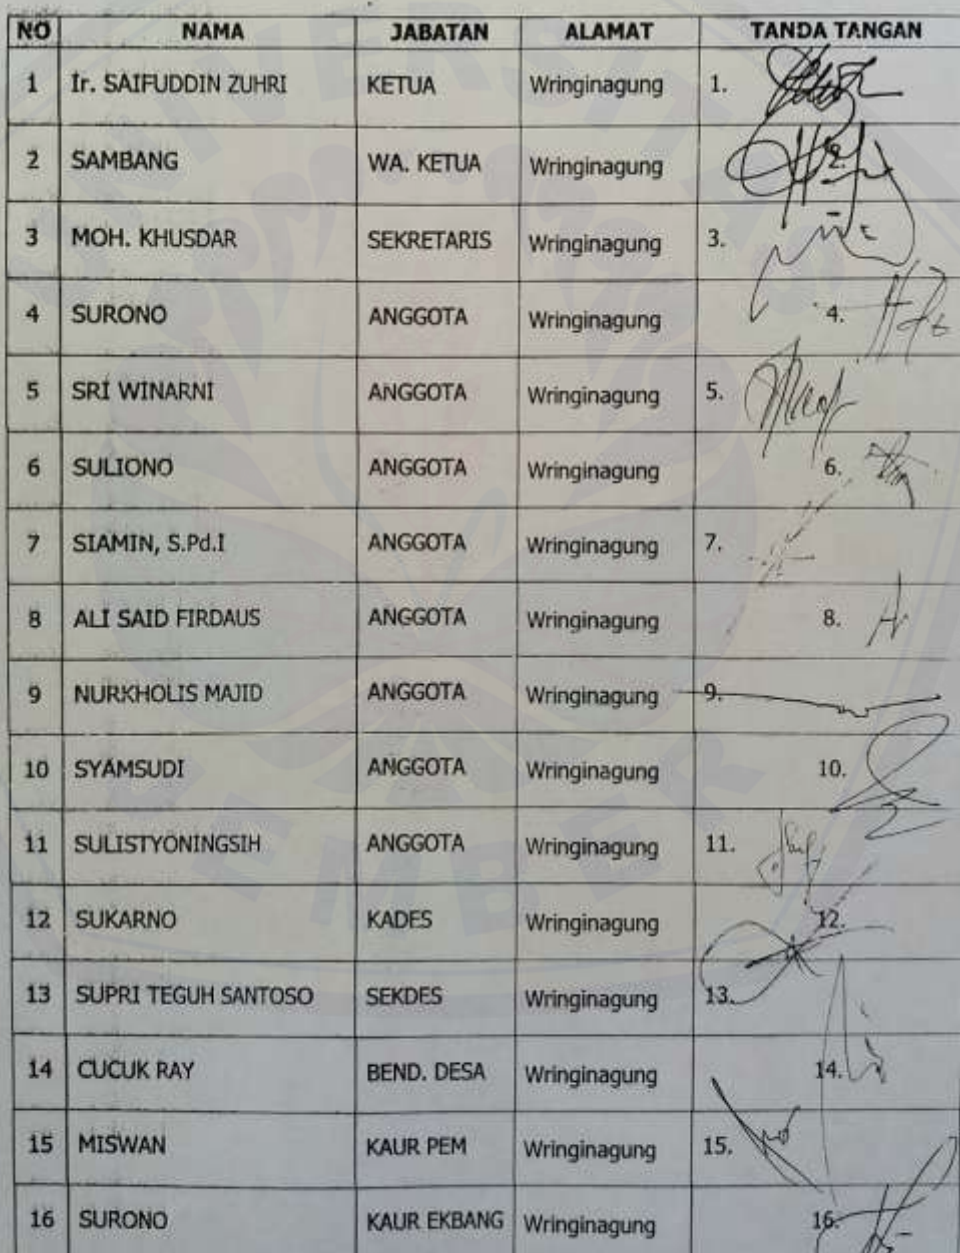 NO NAMA JABATAN ALAMAT TANDA TANGAN
1 Ir. SAIFUDDIN ZUHRI KETUA Wringinagung 1.
2 SAMBANG WA. KETUA Wringinagung
3 MOH. KHUSDAR SEKRETARIS Wringinagung 3.
4 SURONO ANGGOTA Wringinagung 4.
5 SRI WINARNI ANGGOTA Wringinagung 5.
6 SULIONO ANGGOTA Wringinagung 6.
7 SIAMIN, S.Pd.I ANGGOTA Wringinagung 7.
8 ALI SAID FIRDAUS ANGGOTA Wringinagung 8.
9 NURKHOLIS MAJID ANGGOTA Wringinagung 9.
10 SYAMSUDI ANGGOTA Wringinagung 10.
11 SULISTYONINGSIH ANGGOTA Wringinagung 11.
12 SUKARNO KADES Wringinagung 12.
13 SUPRI TEGUH SANTOSO SEKDES Wringinagung 13.
14 CUCUK RAY BEND. DESA Wringinagung 14.
15 MISWAN KAUR PEM Wringinagung 15.
16 SURONO KAUR EKBANG Wringinagung 16.